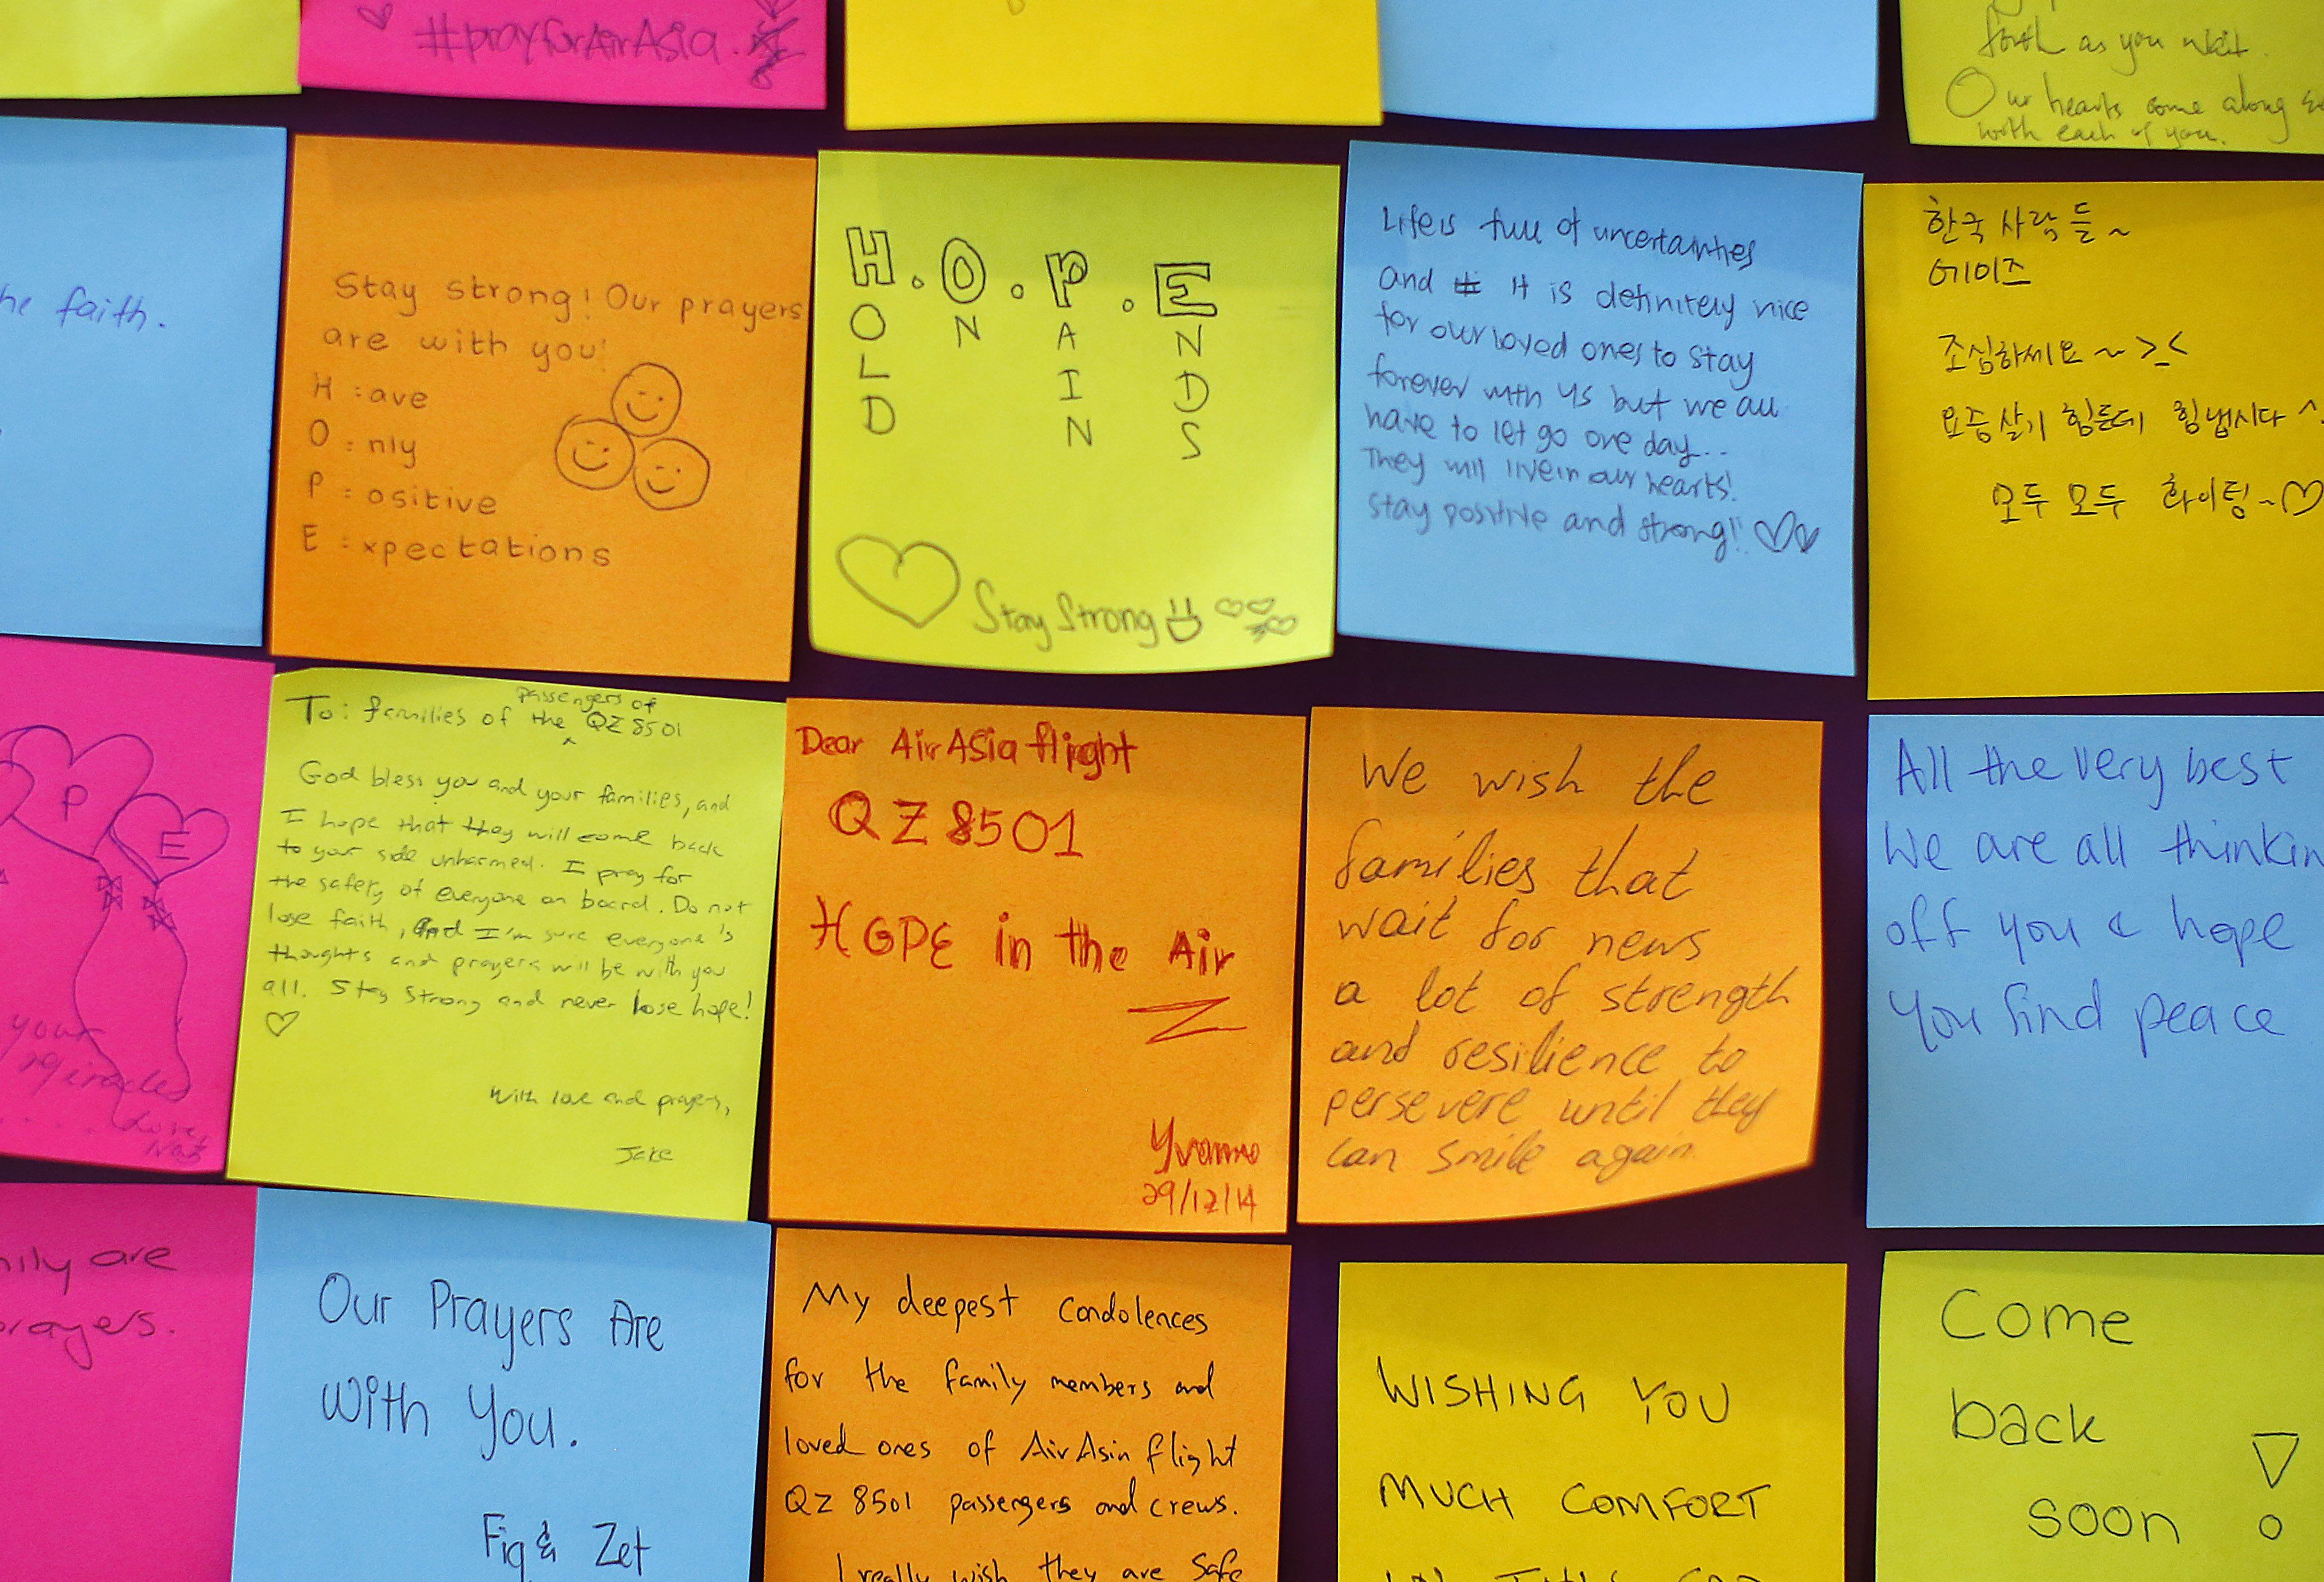 #prayforAirAsia.
forth as you wait.
Our hearts come along
with each of you.
he faith.
Stay strong! Our prayers
are with you!
H : ave
O : nly
P : ositive
E : xpectations
H.O.P.E
HOLD
ON
PAIN
ENDS
Stay Strong
Life is full of uncertainties
and it is definitely nice
for our loved ones to stay
forever with us but we all
have to let go one day..
They will live in our hearts!
stay positive and strong!!
한국 사람들~
에이즈
조심하세요~ >_<
요즘 살기 힘든데 힘냅시다 ^
모두 모두 화이팅~♡
P
E
your
miracle
Love,
Naz
To: families of the passengers of QZ8501
God bless you and your families, and
I hope that they will come back
to your side unharmed. I pray for
the safety of everyone on board. Do not
lose faith, and I'm sure everyone's
thoughts and prayers will be with you
all. Stay strong and never lose hope!
♡
With love and prayers,
Jake
Dear AirAsia flight
QZ8501
HOPE in the Air
Yvonne
29/12/14
We wish the
families that
wait for news
a lot of strength
and resilience to
persevere until they
can smile again
All the very best
We are all thinkin
off you & hope
you find peace
nily are
prayers.
Our Prayers Are
With You.
Fig & Zet
My deepest condolences
for the family members and
loved ones of AirAsia flight
QZ 8501 passengers and crews.
I really wish they are safe
WISHING YOU
MUCH COMFORT
Come
back
soon!